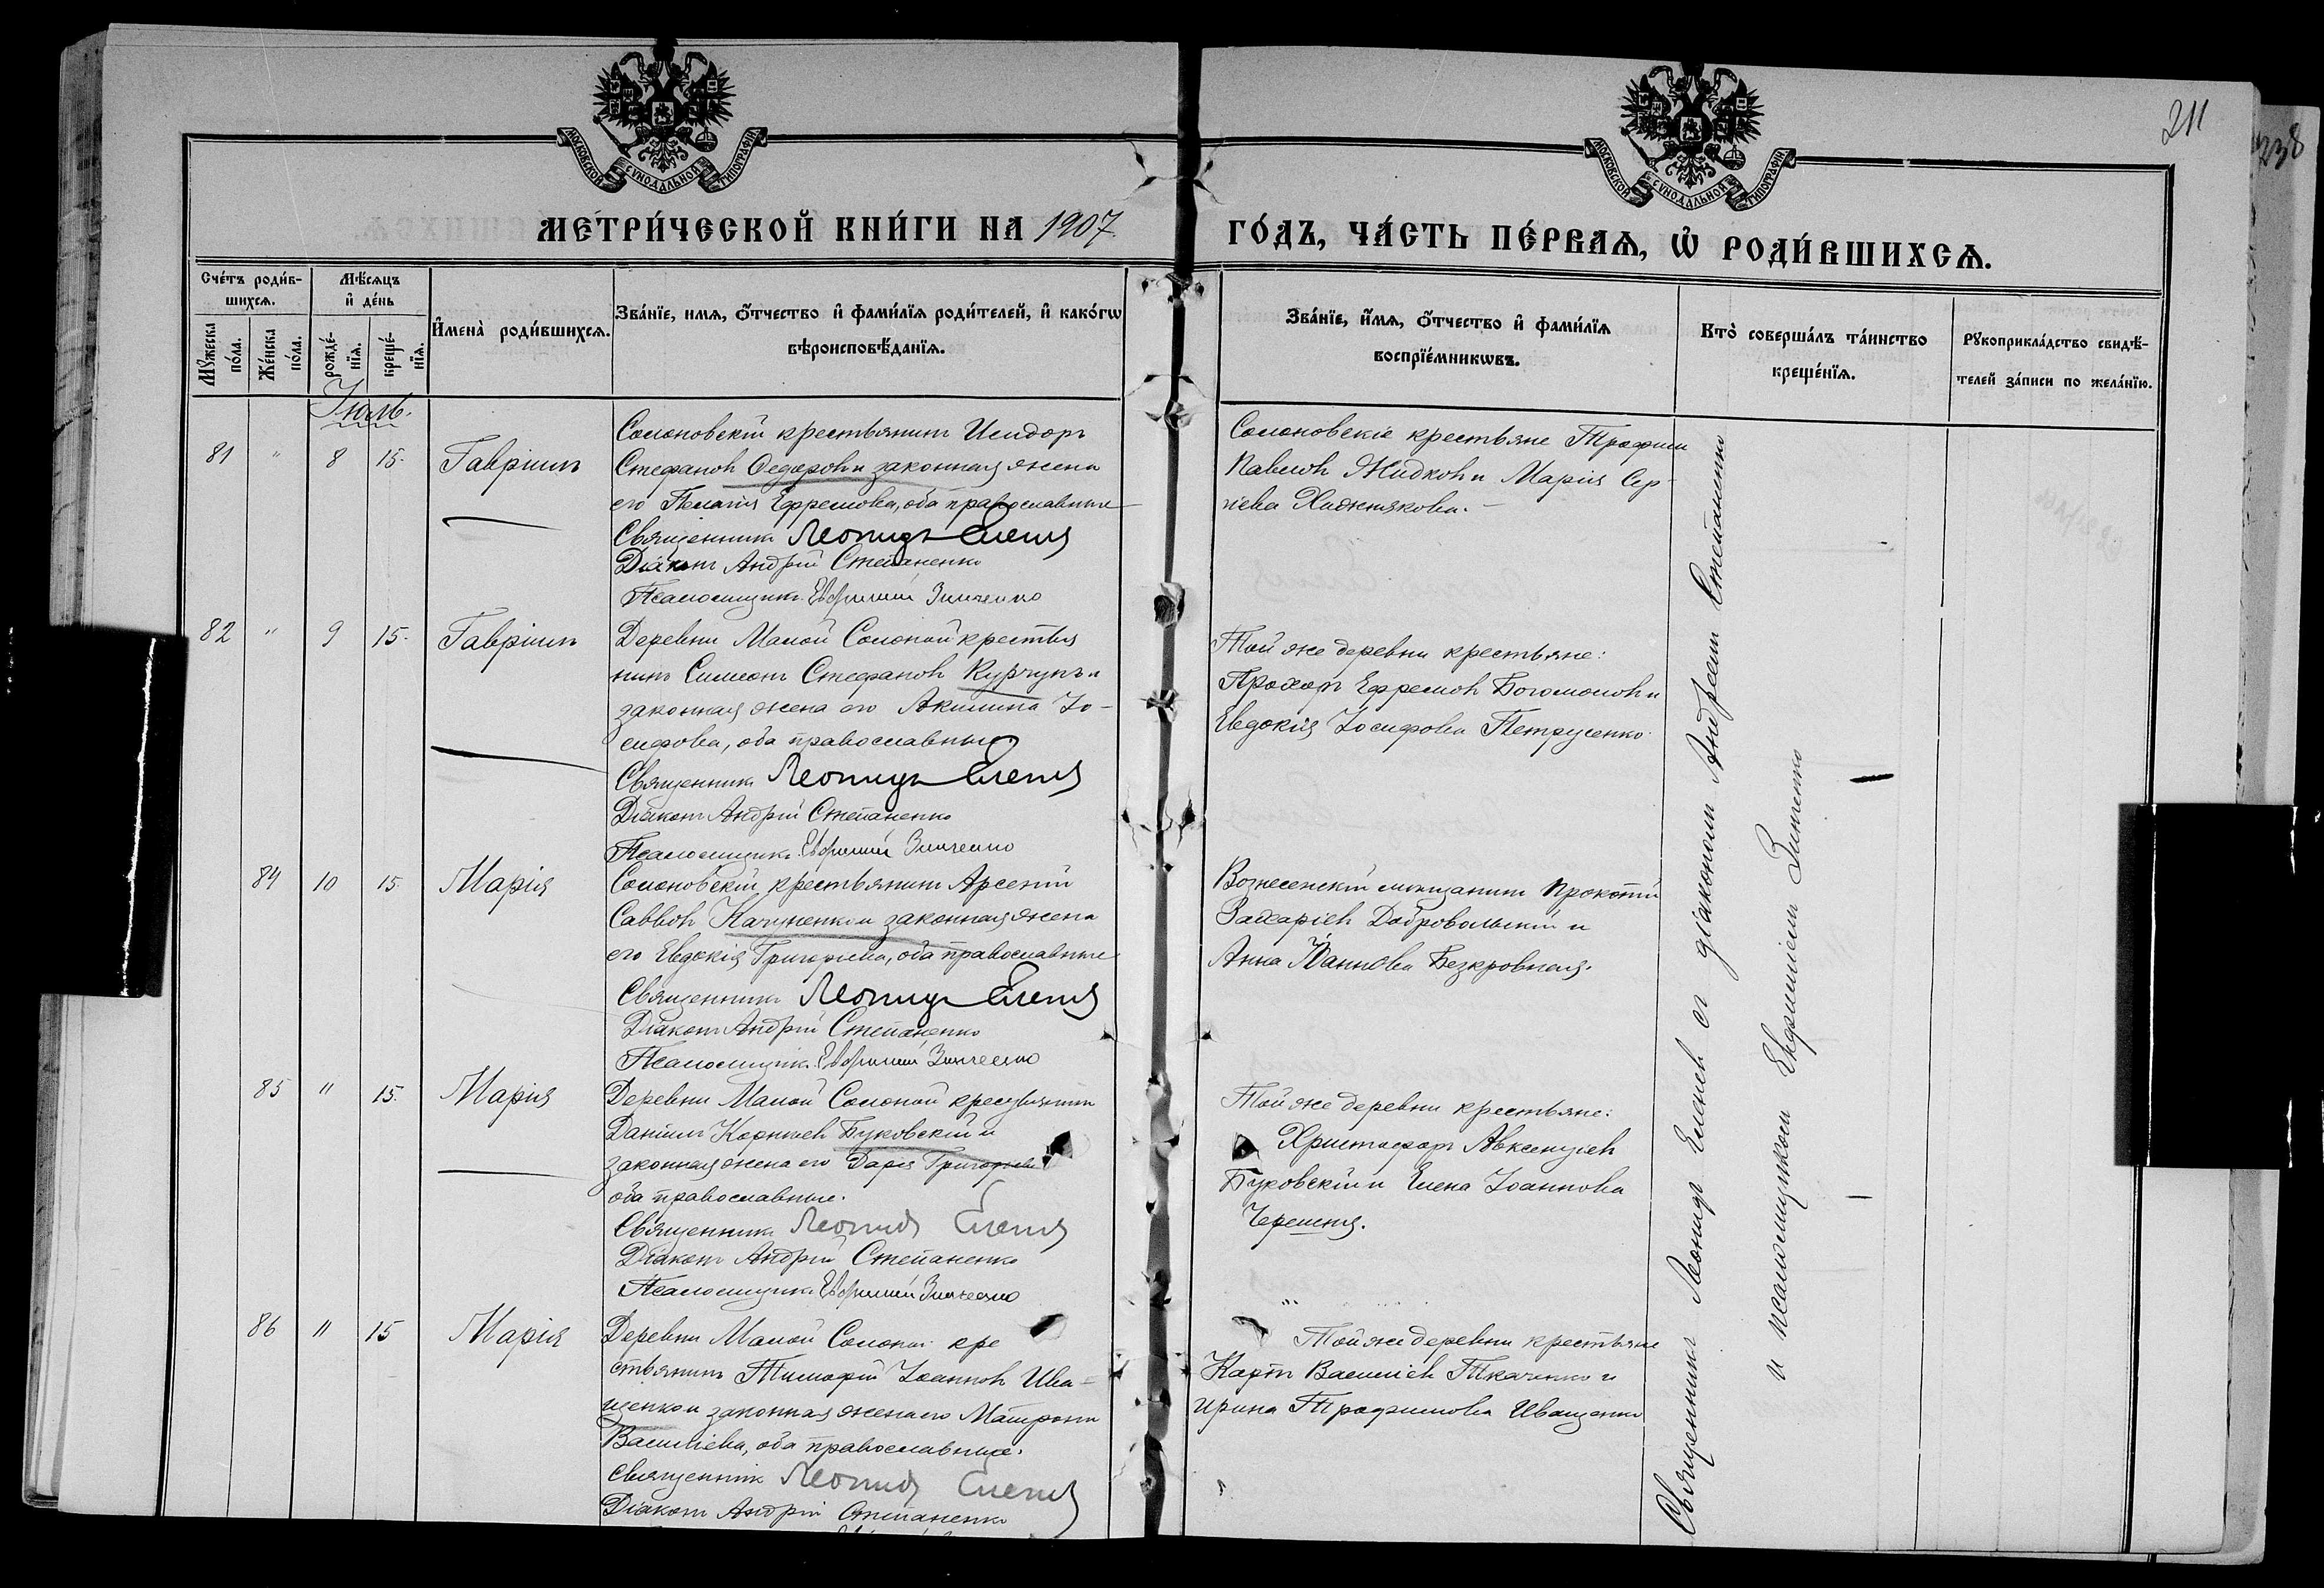 211
238
МОСКОВСКОЙ СУНОДАЛЬНОЙ ТИПОГРАФІИ
МОСКОВСКОЙ СУНОДАЛЬНОЙ ТИПОГРАФІИ
МЕТРИ́ЧЕСКОЙ КНИ́ГИ НА 1907
ГО́ДЪ, ЧА́СТЬ ПЕ́РВАѦ, Ѡ҆ РОДИ́ВШИХСѦ.
Сче́тъ роди́в-
шихсѧ.
Мꙋжеска по́ла.
Же́нска по́ла.
Мѣ́сѧцъ
и҆ де́нь
рожде́-
нїѧ.
креще́-
нїѧ.
И҆мена̀ роди́вшихсѧ.
Зва́нїе, имѧ, о҆́тчество и҆ фами́лїѧ роди́телей, и҆ како́гѡ
вѣроисповѣ́данїѧ.
Зва́нїе, и҆́мѧ, о҆́тчество и҆ фами́лїѧ
воспрїе́мникѡвъ.
Кто̀ соверша́лъ та́инство
креще́нїѧ.
Рꙋкоприкла́дство свидѣ́-
телей за́писи по жела́нїю.
Іюль.
81 " 8 15. Гавріилъ
Солоновскій крестьянинъ Исидоръ
Стефановъ Федоровъ и законная жена
его Пелагія Ефремова, оба православные
Священникъ Леонидъ Еленевъ
Діаконъ Андрей Степаненко
Псаломщикъ Евфимій Зинченко
Солоновскіе крестьяне Трофимъ
Павловъ Жидковъ и Марія Сер-
гіева
82 " 9 15. Гавріилъ
Деревни Малой Солоной крестья
нинъ Симеонъ Стефановъ Курчунъ и
законная жена его Акилина Іо-
сифова, оба православные
Священникъ Леонидъ Еленевъ
Діаконъ Андрей Степаненко
Псаломщикъ Евфимій Зинченко
Той же деревни крестьяне:
Прохоръ Ефремовъ Богомоловъ и
Евдокія Іосифова Петрусенко
84 10 15 Марія
Солоновскій крестьянинъ Арсеній
Саввовъ и законная жена
его Евдокія Григорьева, оба православные
Священникъ Леонидъ Еленевъ
Діаконъ Андрей Степаненко
Псаломщикъ Евфимій Зинченко
Вознесенскій мещанинъ Прокопій
Захаріевъ Добровольскій и
Анна Іваннова Безкровная.
85 11 15. Марія
Деревни Малой Солоной крестьянинъ
Даніилъ Корніевъ Буковскій и
законная жена его Дарія Григорьева
оба православные.
Священникъ Леонидъ Еленевъ
Діаконъ Андрей Степаненко
Псаломщикъ Евфимій Зинченко
Той же деревни крестьяне:
Христофоръ Авксентіевъ
Буковскій и Елена Іоаннова
86 11 15 Марія
Деревни Малой Солоной кре
стьянинъ Тимофей Іоанновъ Ива-
щенко и законная жена его Матрона
Василіева, оба православные.
Священникъ Леонидъ Еленевъ
Діаконъ Андрей Степаненко
Той же деревни крестьяне
Карпъ Василіевъ Ткаченко и
Ирина Трофимова Иващенко
Священникъ Леонидъ Еленевъ съ діакономъ Андреемъ Степаненко
и псаломщикомъ Евфиміемъ Зинченко